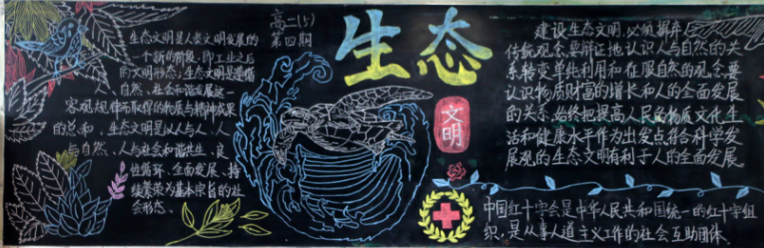 高二(5)
第四期
生态
文明
生态文明是人类文明发展的
一个新的阶段,即工业之后
的文明形态;生态文明是遵循
自然、社会和谐发展这一
客观规律而取得的物质与精神成果
的总和,生态文明是以人与人、人
与自然、人与社会和谐共生、良
性循环、全面发展、持
续繁荣为基本宗旨的社
会形态。
建设生态文明,必须摒弃
传统观念,要辩证地认识人与自然的关
系,转变单纯利用和征服自然的观念,要
认识物质财富的增长和人的全面发展
的关系,始终把提高人民的物质文化生
活和健康水平作为出发点,符合科学发
展观的生态文明有利于人的全面发展
中国红十字会是中华人民共和国统一的红十字组
织,是从事人道主义工作的社会互助团体